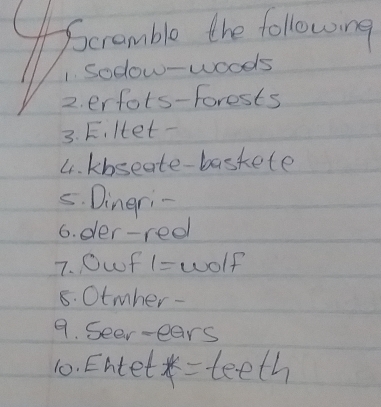 Scramble the following
1. Sodow-woods
2. erfots-forests
3. Eiltet-
4. kbseate-baskete
5. Dingri-
6. der-red
7. Owf l=wolf
8. Otmher-
9. Seer-ears
10. Ehtet=teeth